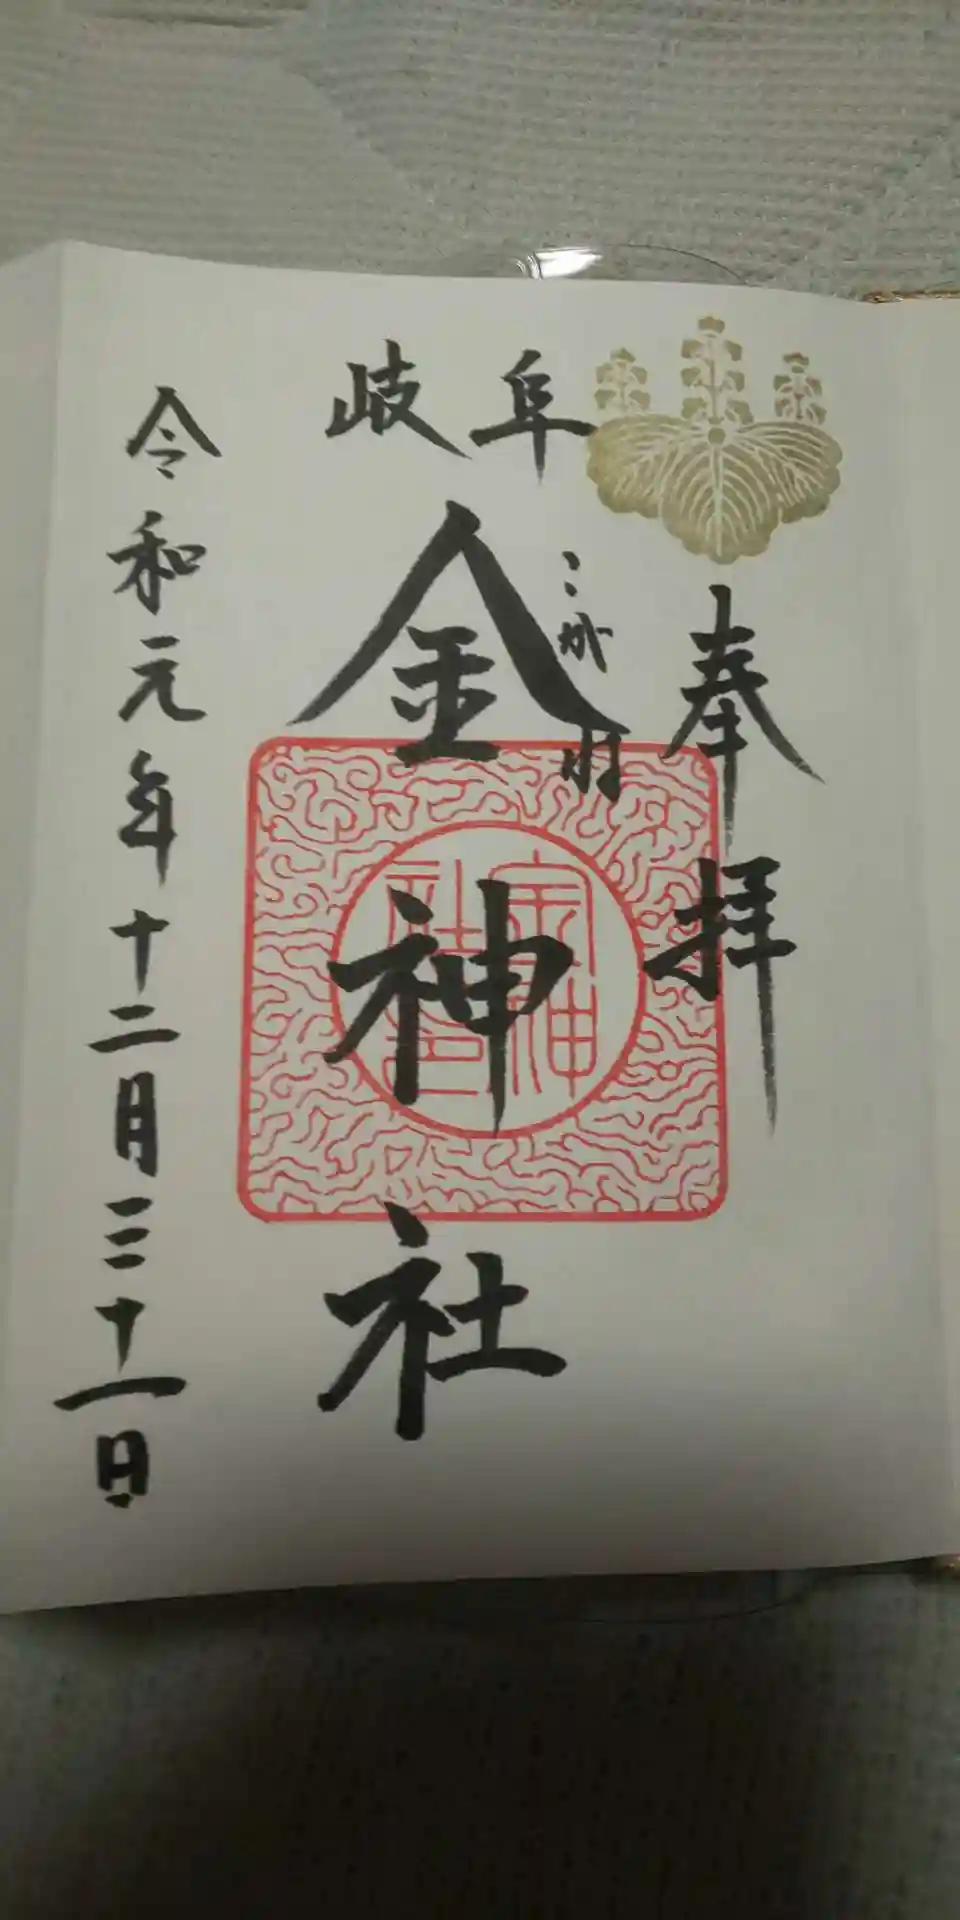 奉拝
岐阜
こがね
金神社
令和元年十二月三十一日